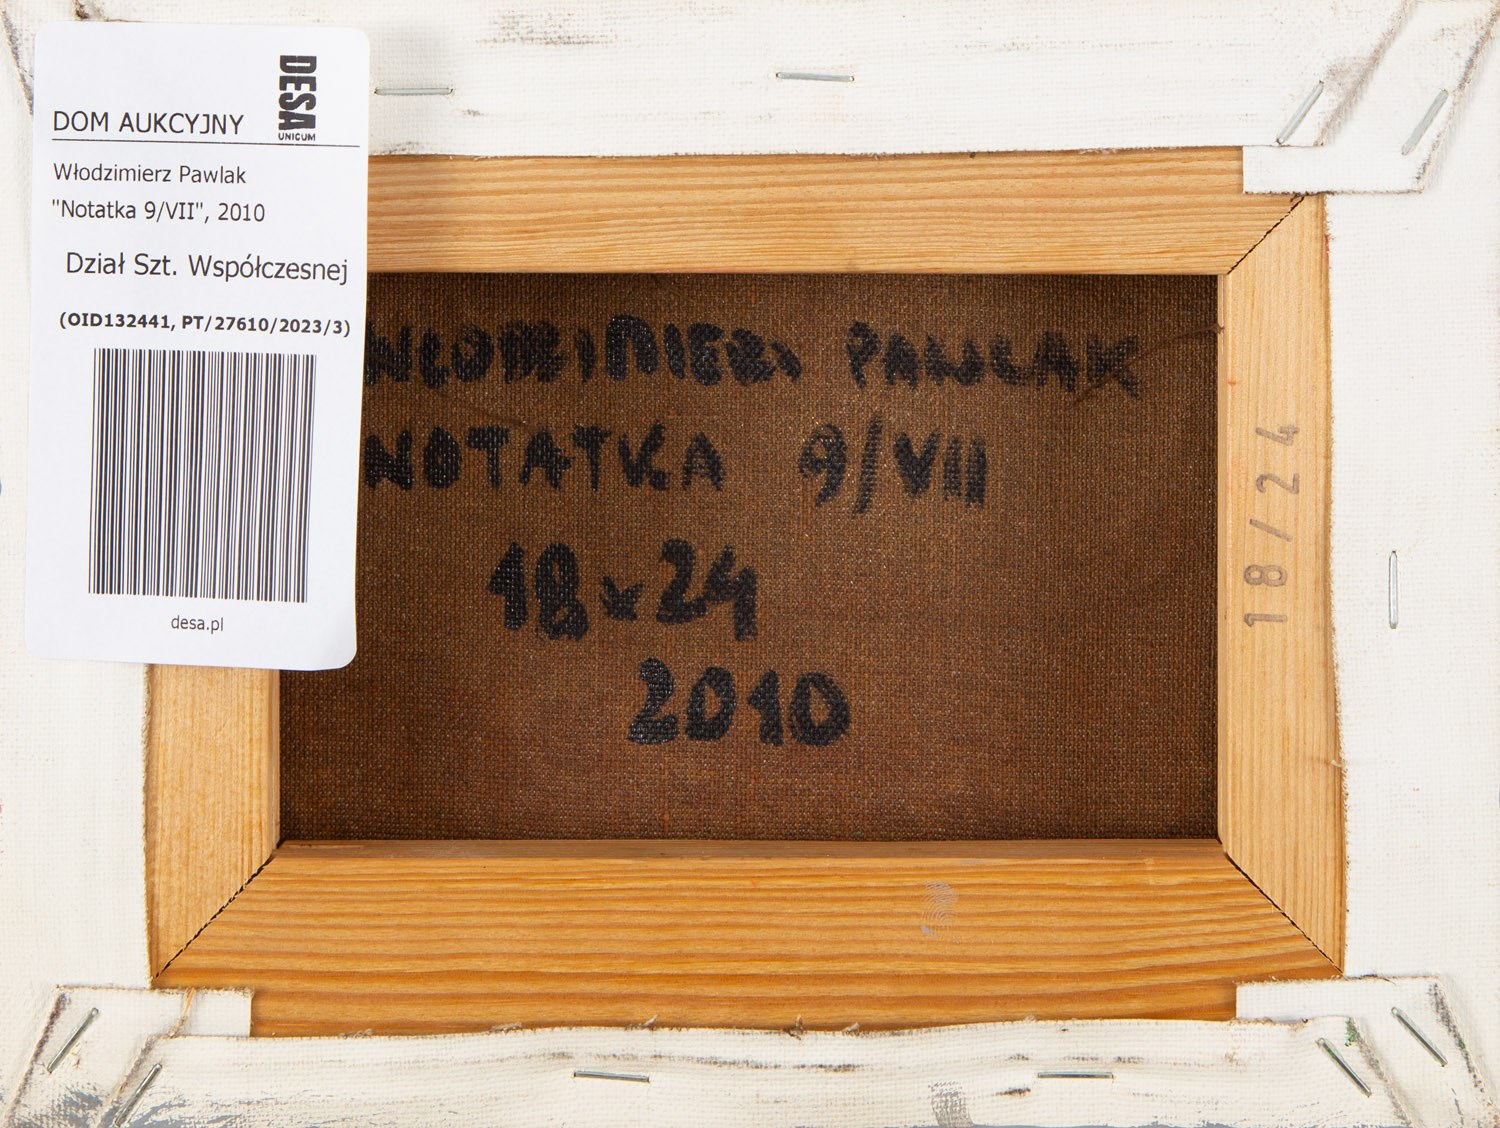 DESA
UNICUM
DOM AUKCYJNY
Włodzimierz Pawlak
"Notatka 9/VII", 2010
Dział Szt. Współczesnej
(OID132441, PT/27610/2023/3)
desa.pl
WŁODZIMIERZ PAWLAK
NOTATKA 9/VII
18x24
2010
18/24